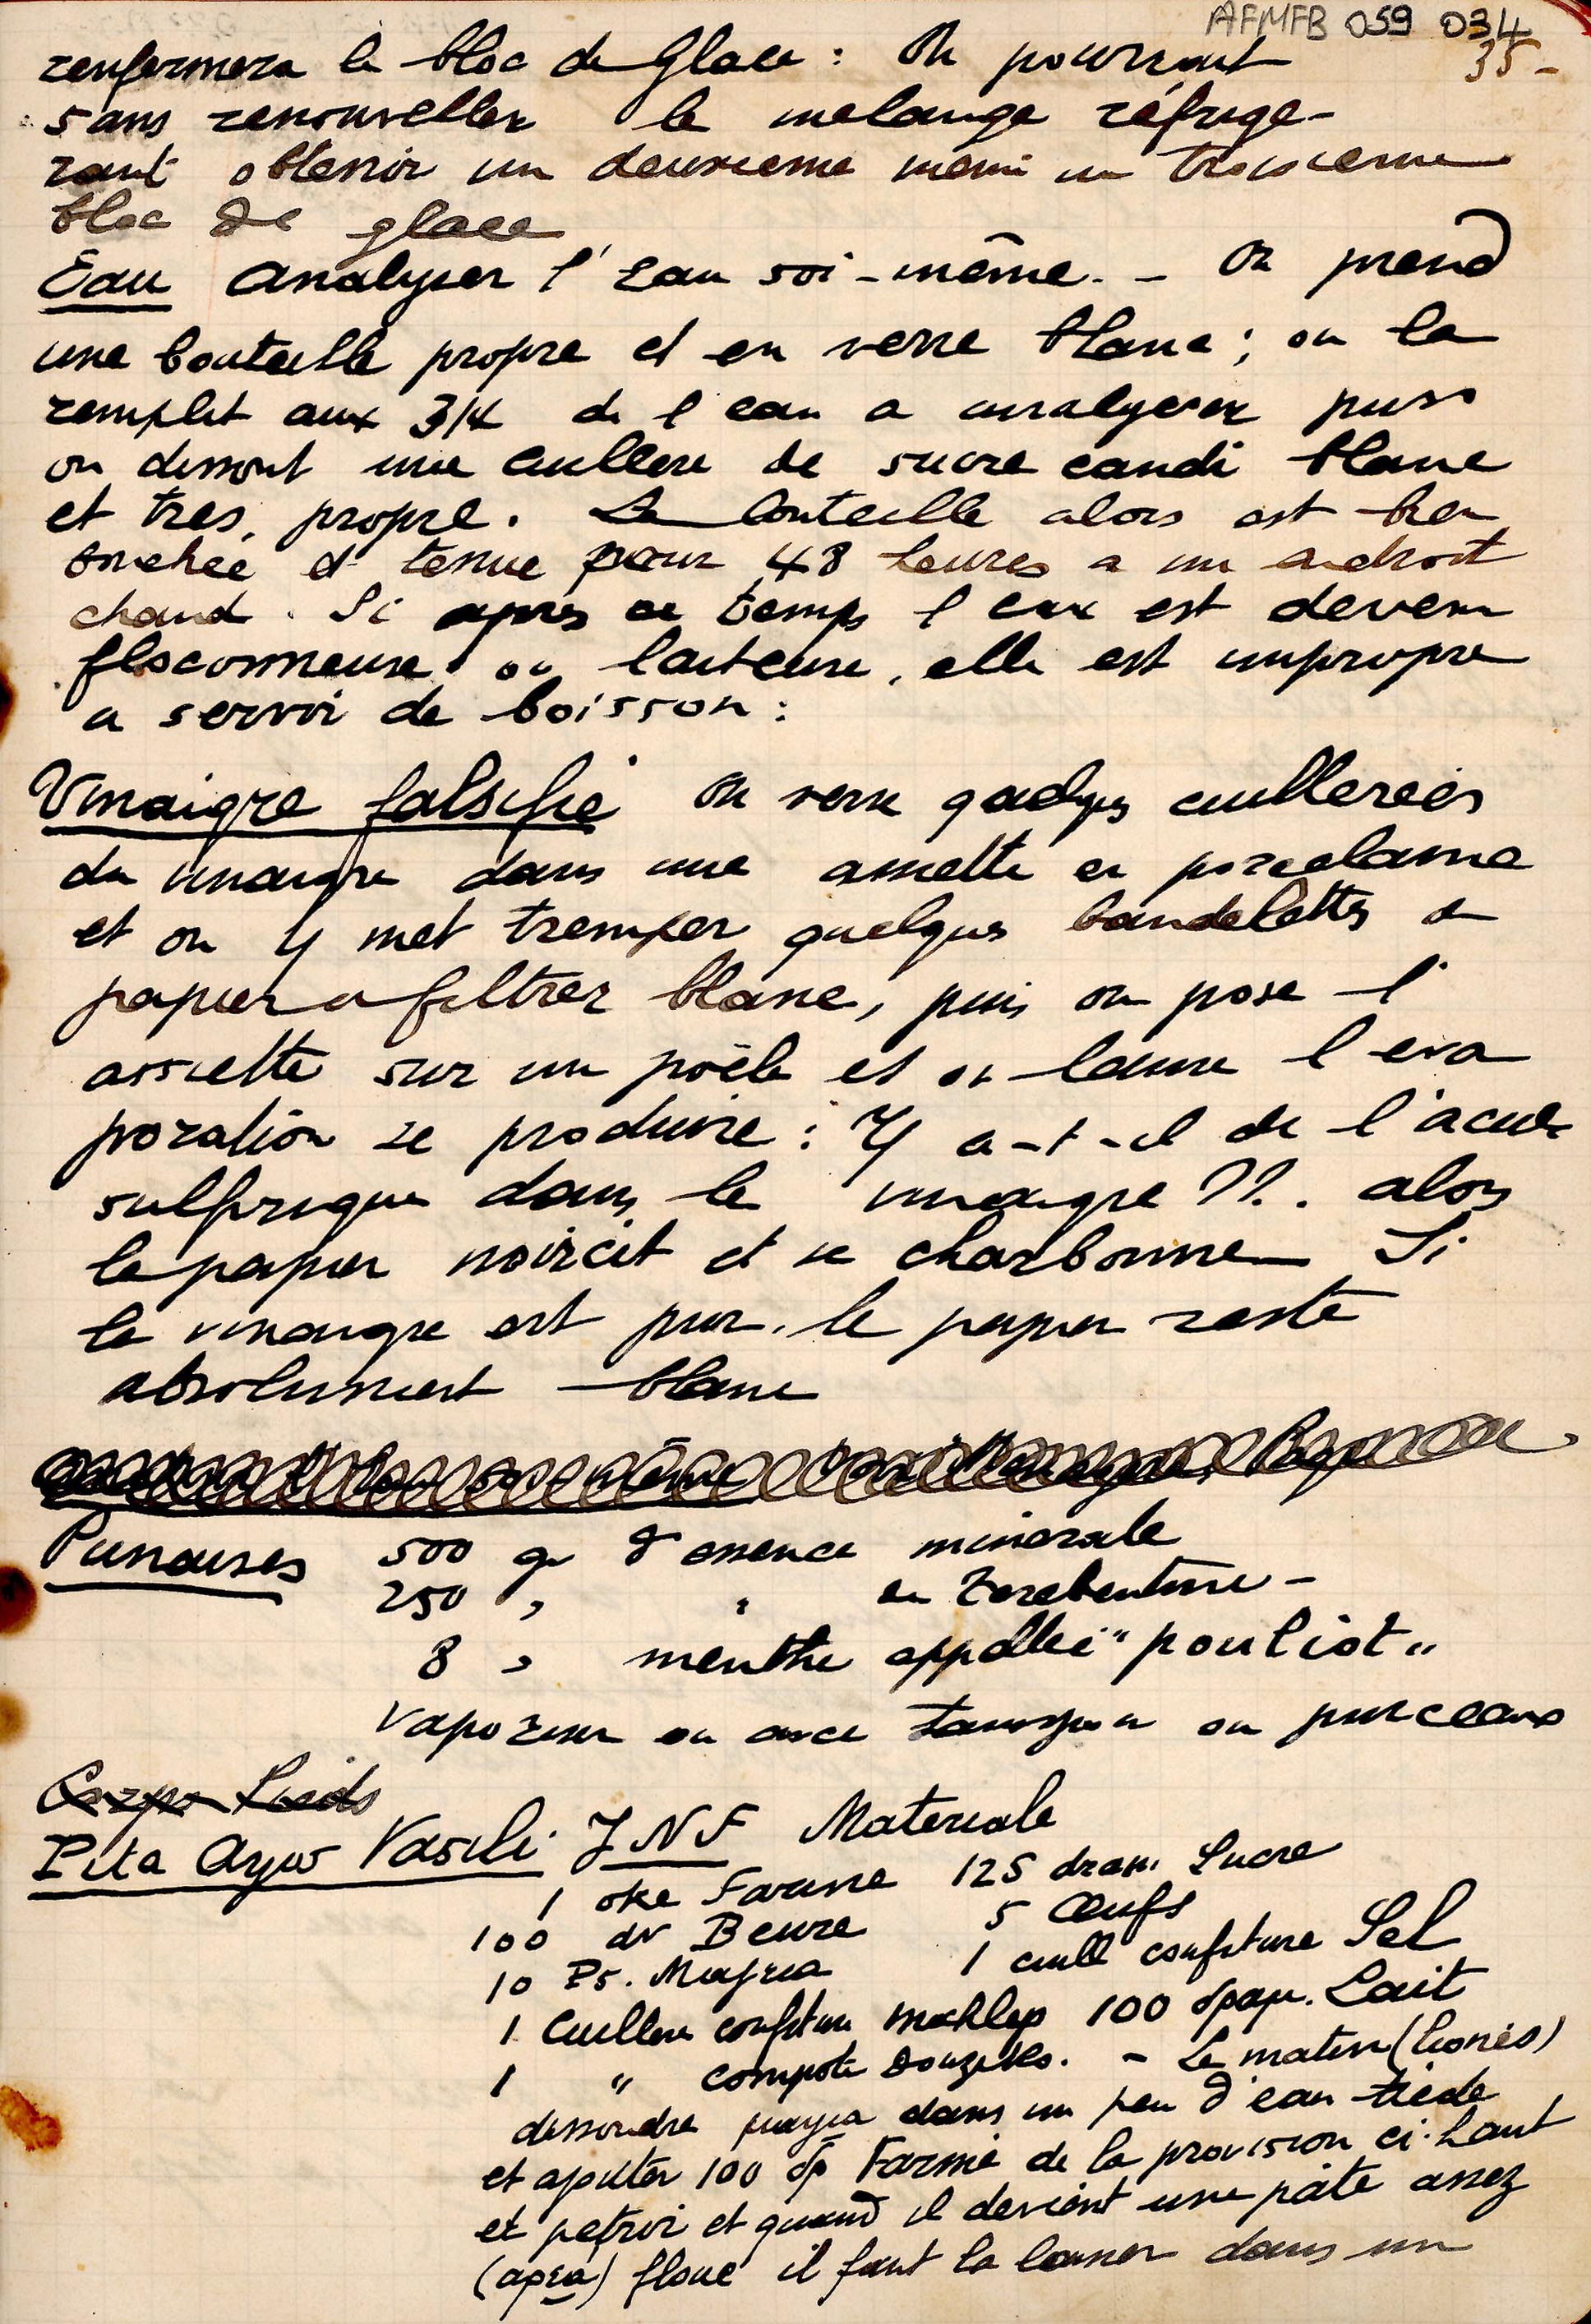 AFMFB 059 034
35-
renfermera le bloc de Glace : On pourrait
sans renouveller le melange réfrige-
rant obtenir un deuxieme meme un troisieme
bloc de glace
Eau Analyser l'Eau soi-même. - On prend
une bouteille propre et en verre blanc ; on la
remplit aux 3/4 de l eau a analyser puis
on dissout une cuillere de sucre candi blanc
et tres propre. La bouteille alors est bien
bouchée et tenue pour 48 heures a un endroit
chaud. Si après ce temps l eau est devenu
floconneuse ou laiteuse, elle est impropre
a servir de boisson :
Vinaigre falsifié On verse quelques cuillerées
du vinaigre dans une assiette en porcelaine
et on y met tremper quelques bandelettes de
papier a filtrer blanc, puis on pose l'
assiette sur un poêle et on laisse l eva
poration se produire : Y a-t-il de l'acide
sulfurique dans le vinaigre ??. alors
le papier noircit et se charbonne Si
le vinaigre est pur, le papier reste
absolument blanc
Punaises 500 gr d essence minerale
250 " " en Terebentine -
8 " menthe appellée "pouliot"
Vaporiser ou avec tampon ou pinceaux
Pita Ayios Vasili J N F Materiale
1 oke Farine 125 dram Sucre
100 dr Beurre 5 Œufs
10 Ps. Mayia 1 cuill confiture Sel
1 Cuillere confiture mahlep 100 δραμ. Lait
1 " compote - Le matin
dissoudre mayia dans un peu d'eau tiède
et ajouter 100 δρ Farine de la provision ci-haut
et petrir et quand il devient une pâte assez
floue il faut la laisser dans un